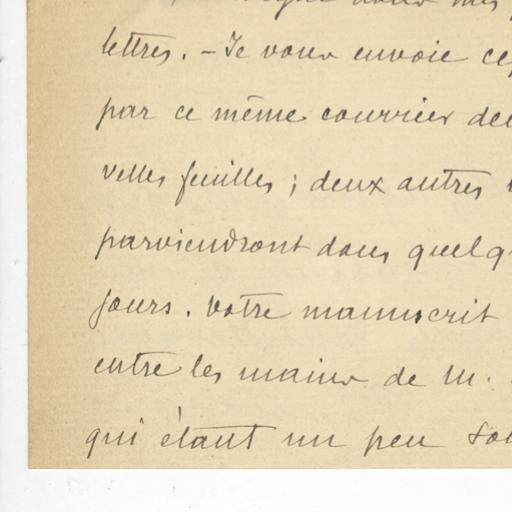 dans mes
lettres. – Je vous envoie
par ce même courrier
velles feuilles ; deux autres
parviendront dans quelq
jours. Votre manuscrit
entre les mains de M.
qui étant un peu